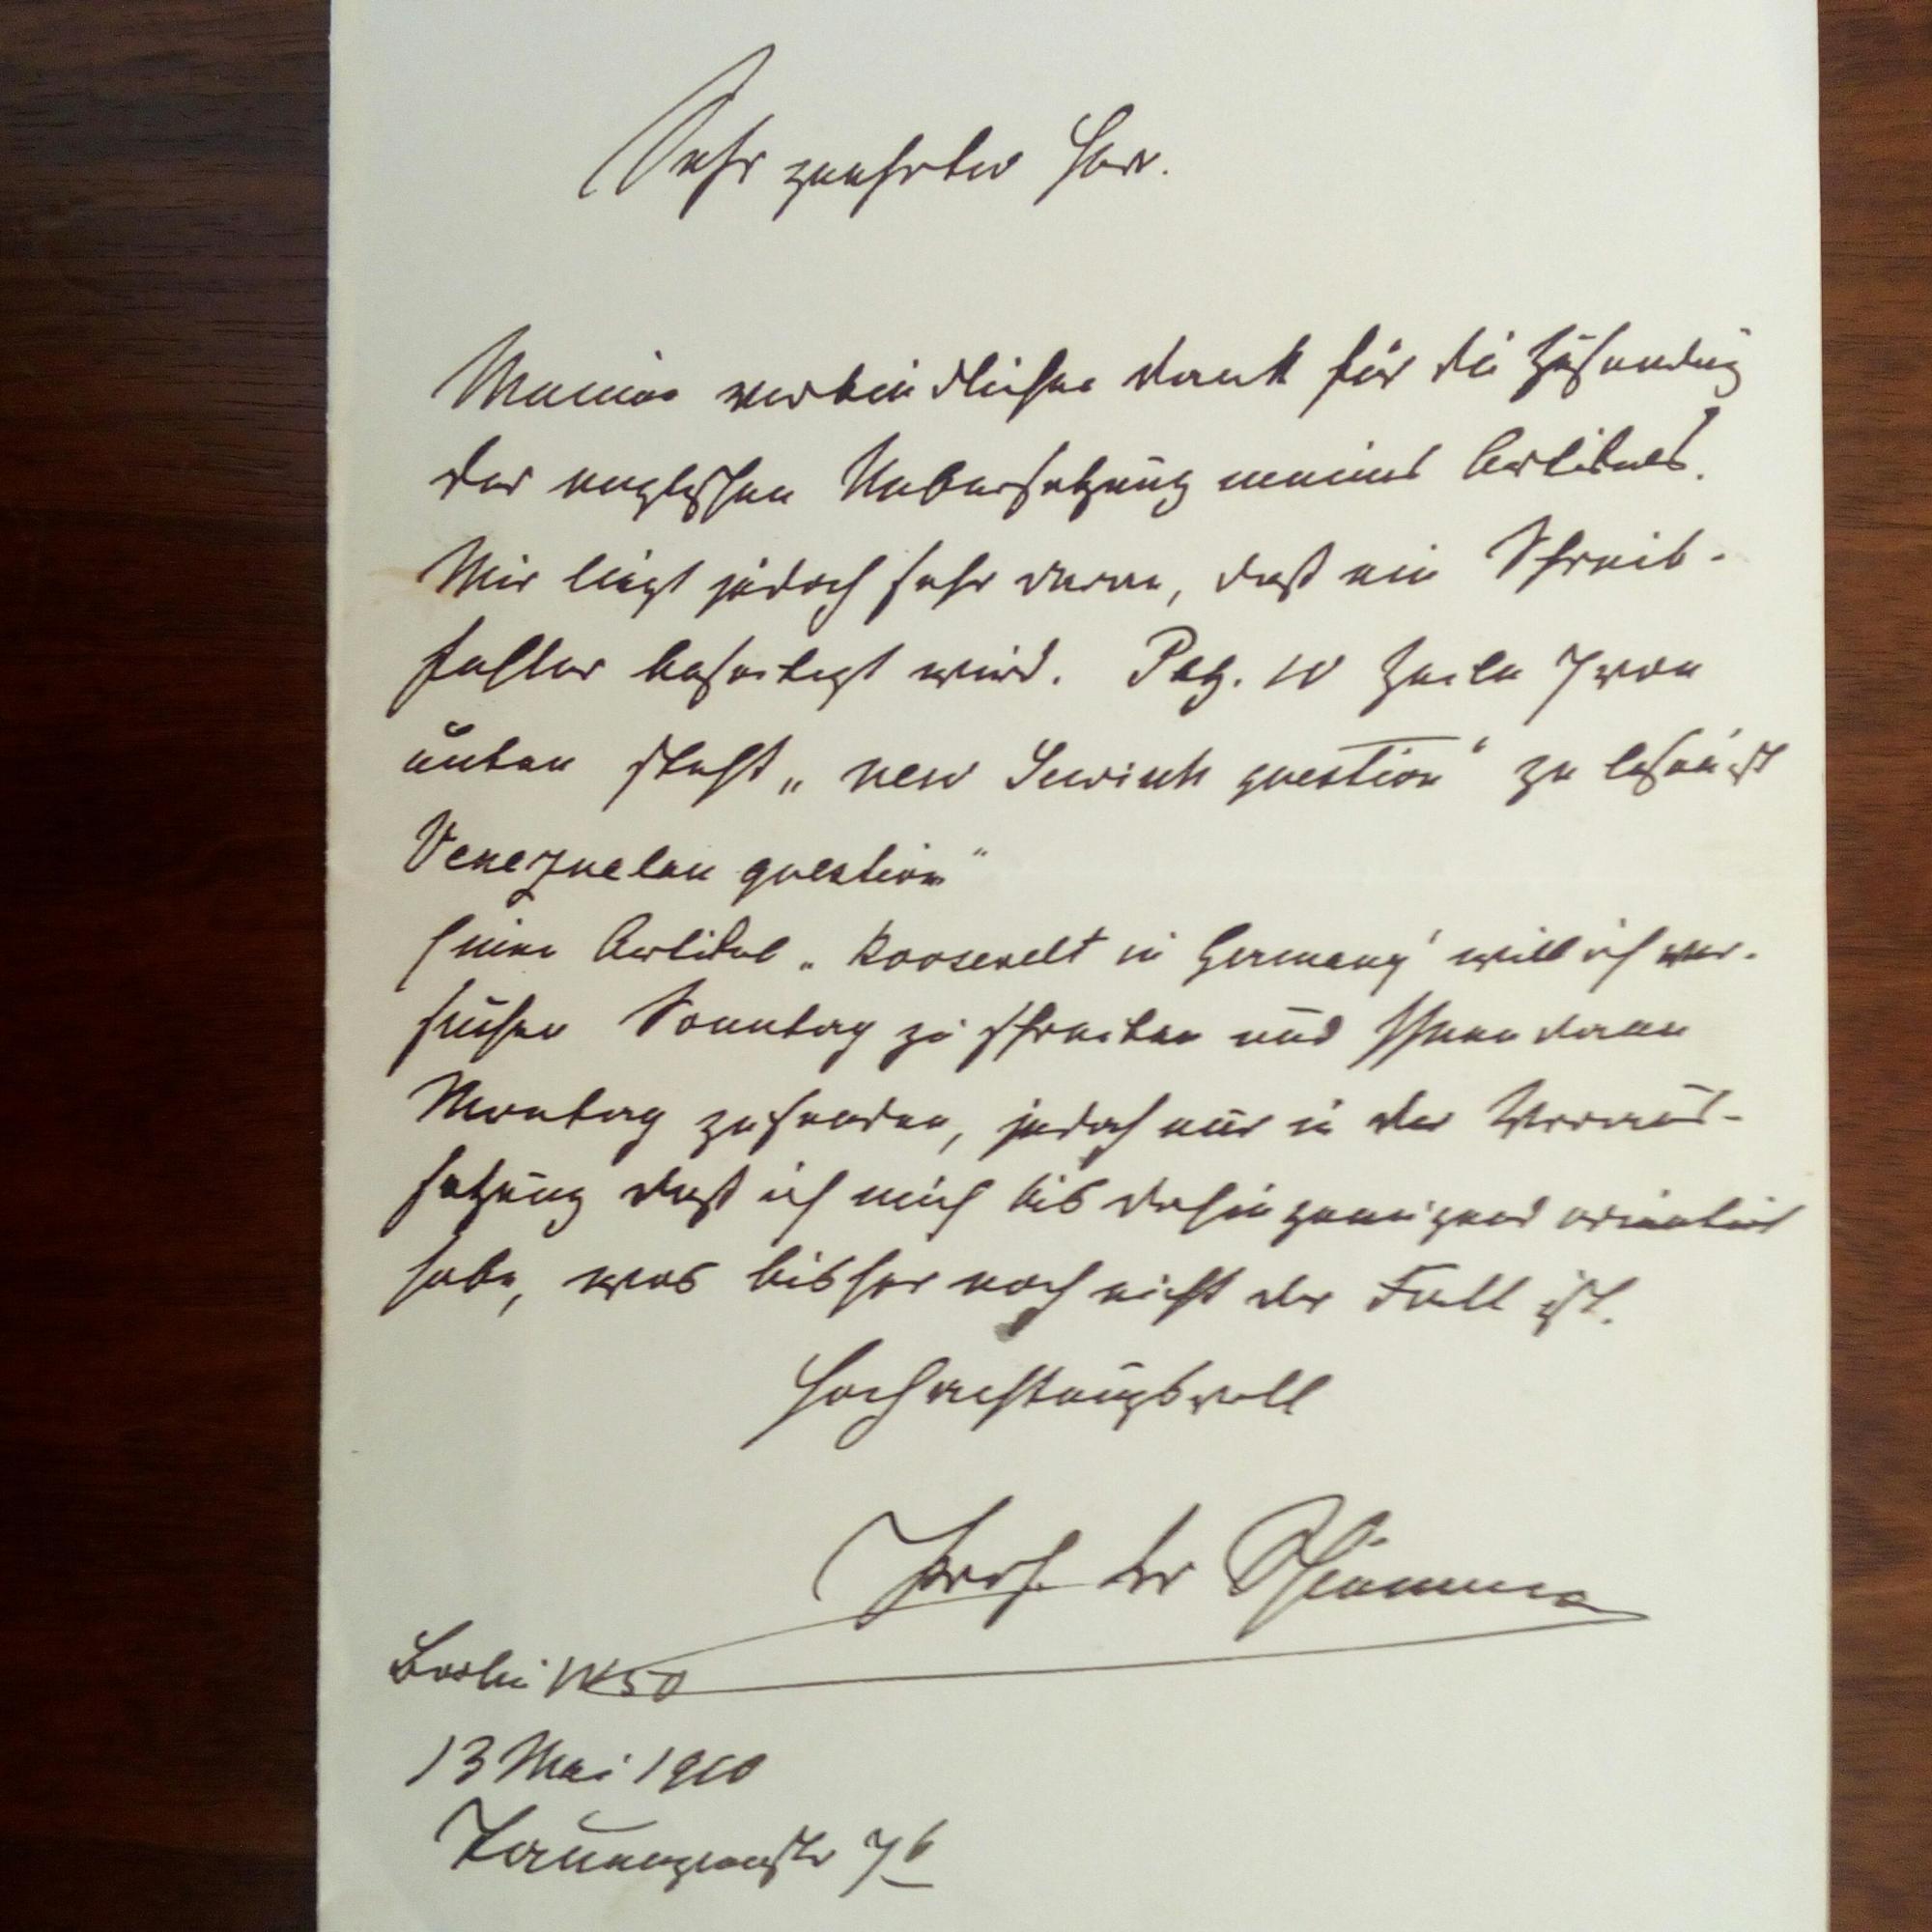 Sehr geehrter Herr.
Meinen verbindlichen Dank für die Zusendung
der englischen Uebersetzung meines Artikels.
Mir liegt jedoch sehr daran, daß ein Schreib-
fehler beseitigt wird. Pag. 10 Zeile 7 von
unten steht „new Jewish question“ zu lesen ist
Venezuelan question“
Einen Artikel „Roosevelt in Germany“ will ich ver-
suchen Sonntag zu schreiben und Ihnen dann
Montag zusenden, jedoch nur in der Voraus-
setzung daß ich mich bis dahin genügend orientirt
habe, was bisher noch nicht der Fall ist.
Hochachtungsvoll
Prof. Dr Schiemann
Berlin W50
13 Mai 1910
Tauenzienstr 7b